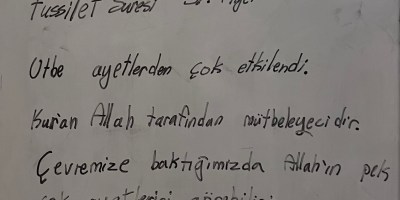 Fussilet Suresi
Utbe ayetlerden çok etkilendi.
Kur'an Allah tarafından mütbeleyecidir.
Çevremize baktığımızda Allah'ın pek
çok ayetlerini